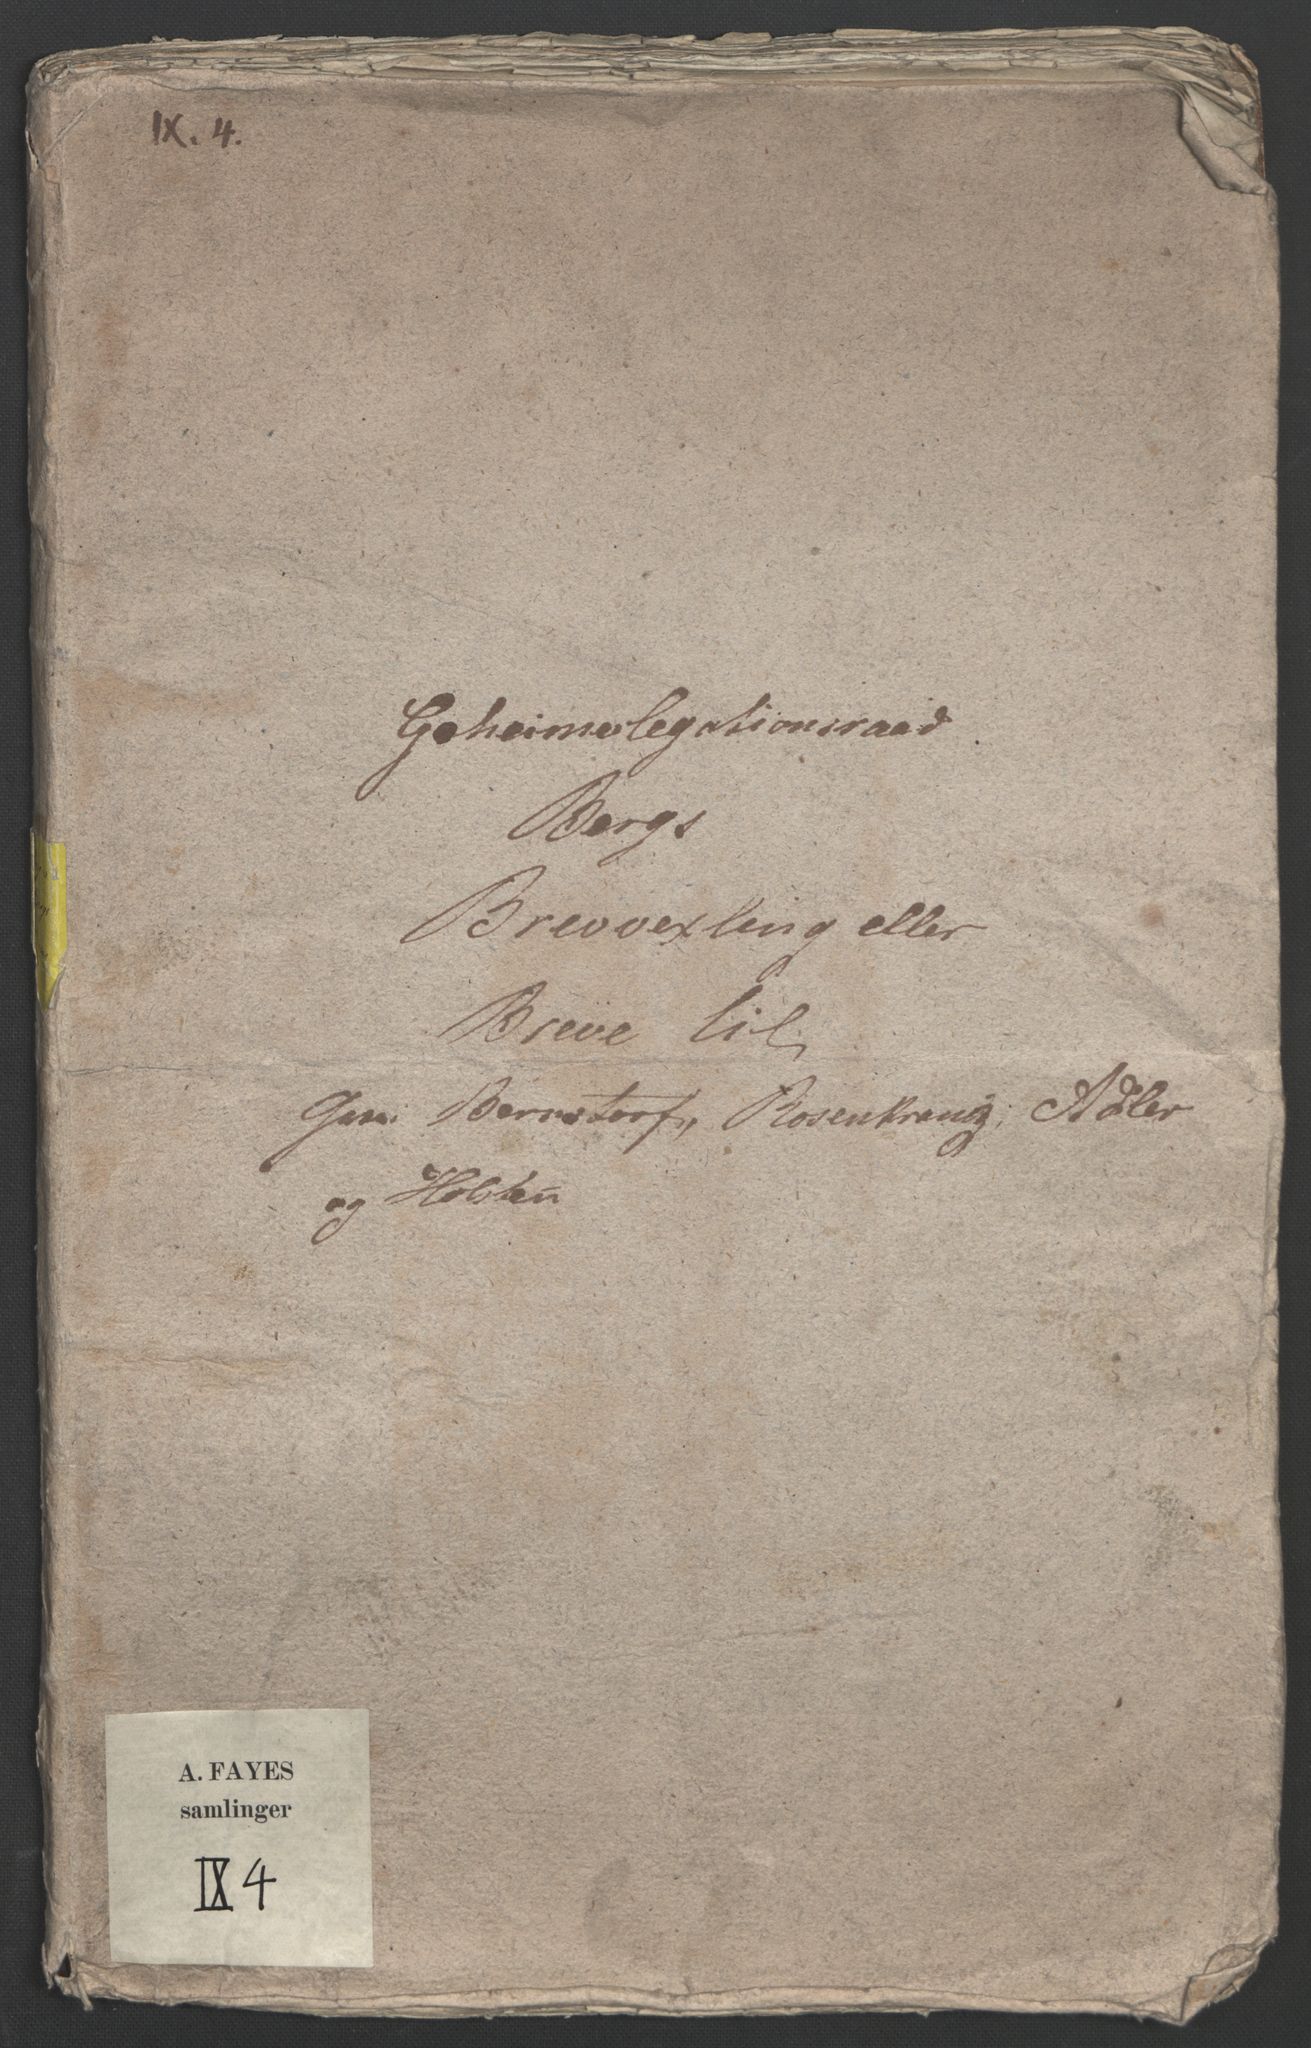 IX. 4.
Geheimelegationsraad
Bergs
Brevvexling eller
Breve til
Bernstorf, Rosenkrantz, Adler
og Holsten
A. FAYES
samlinger
IX 4